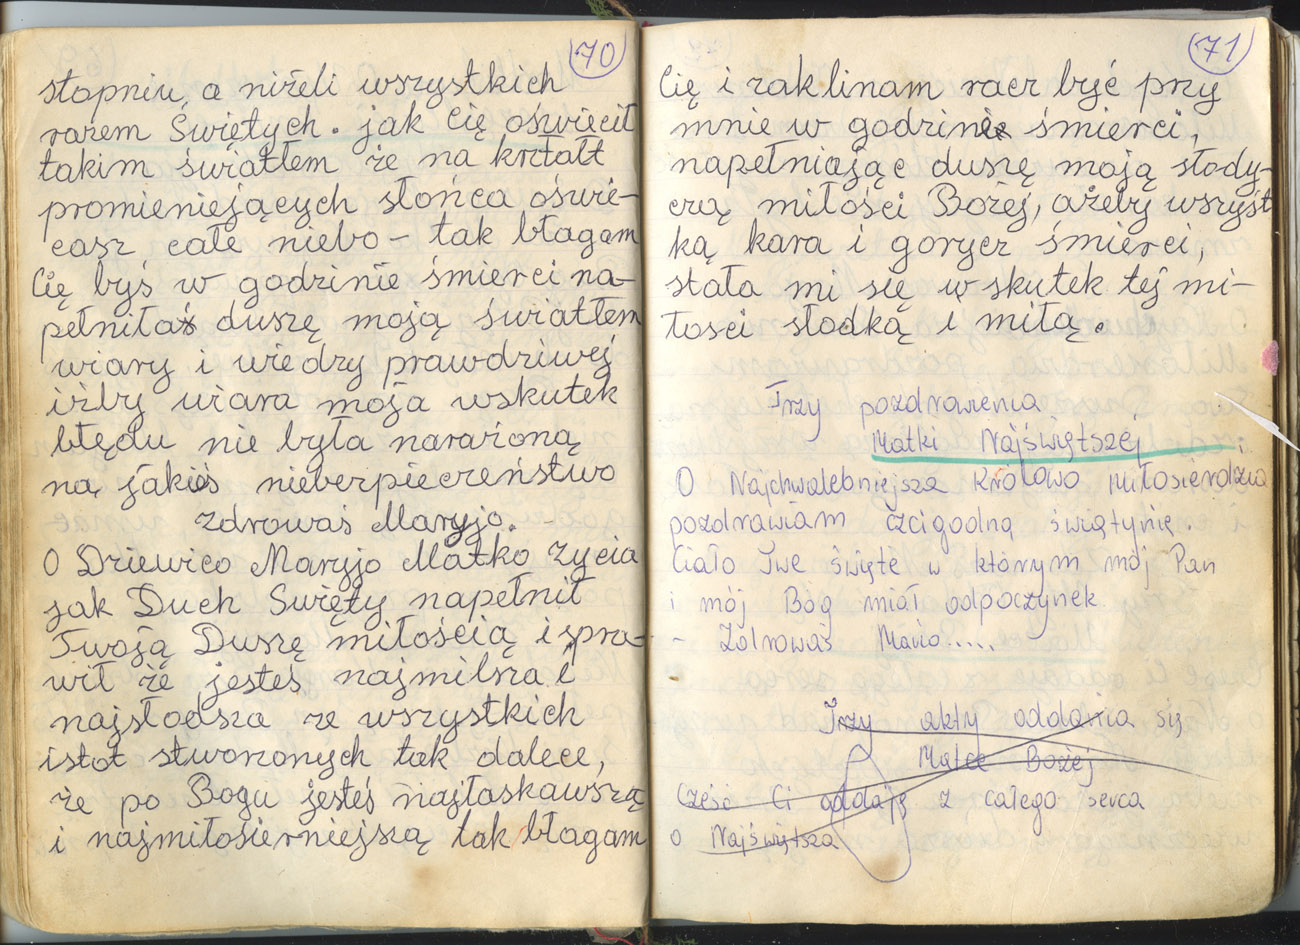 70
stopniu, a niżeli wszystkich
razem Świętych. jak Cię oświecił
takim światłem że na kształt
promieniejących słońca oświe-
casz całe niebo - tak błagam
Cię byś w godzinie śmierci na-
pełniłaś duszę moją światłem
wiary i wiedzy prawdziwej
iżby wiara moja wskutek
błędu nie była narażoną
na jakieś nieberpieczeństwo
Zdrowaś Maryjo.
O Dziewico Maryjo Matko życia
jak Duch Święty napełnił
Twoją Duszę miłością i spra-
wił że jesteś najmilsza i
najsłodsza ze wszystkich
istot stworzonych tak dalece,
że po Bogu jesteś najłaskawszą
i najmiłosierniejszą tak błagam
71
Cię i zaklinam racz być przy
mnie w godzinie śmierci,
napełniając duszę moją słody-
czą miłości Bożej, ażeby wszyst
ką kara i gorycz śmierci,
stała mi się w skutek tej mi-
łosci słodką i miłą.
Trzy pozdrawienia
Matki Najświętszej
O Najchwalebniejsza Królowo miłosierdzia
pozdrawiam czcigodną świątynię
Ciało Twe święte w którym mój Pan
i mój Bóg miał odpoczynek
- Zdrowaś Mario.....
Trzy akty oddania się
Matce Bożej
Cześć Ci oddaję z całego serca
o Najświętsza